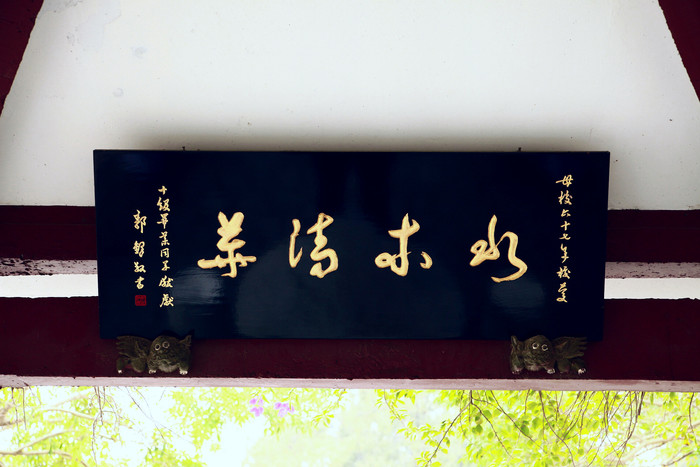 母校六十七年校慶
水木清華
十級畢業同学敬獻
郭 敬書